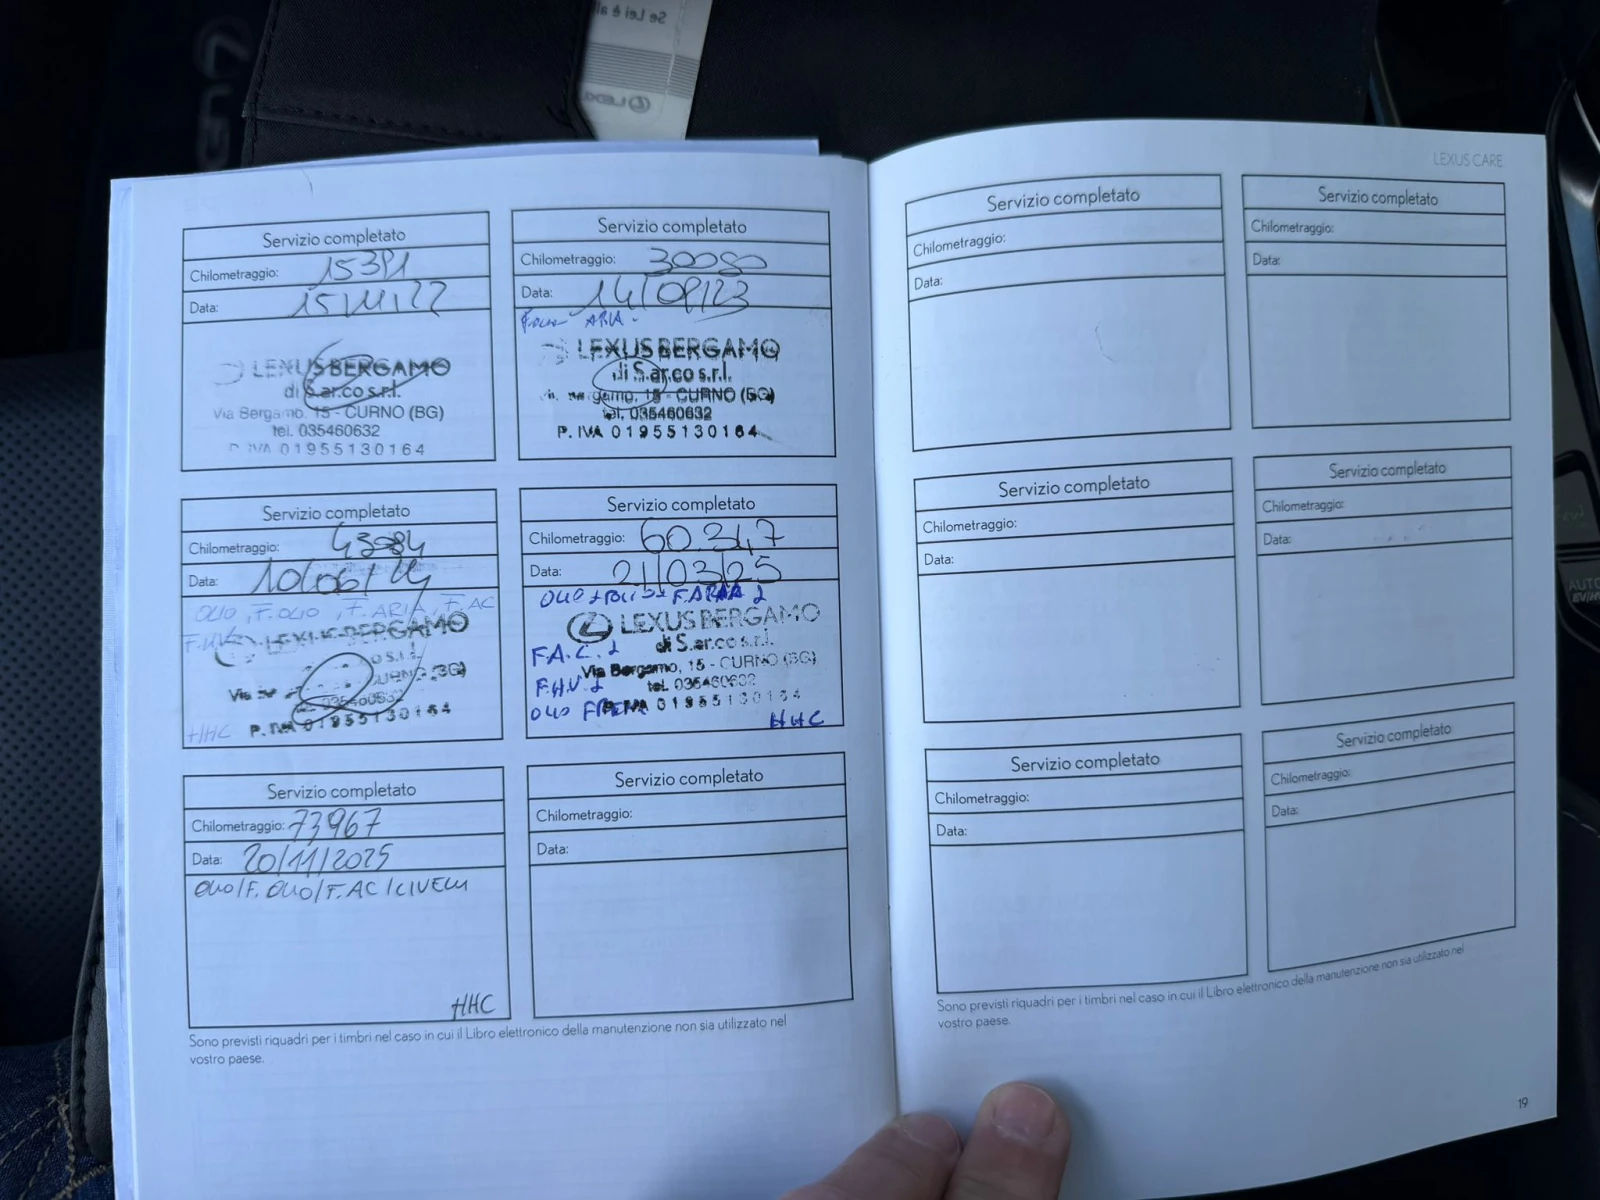 LEXUS CARE
Servizio completato
Chilometraggio: 15391
Data: 15/11/22
LEXUS BERGAMO
di S.ar.co s.r.l.
Via Bergamo, 15 - CURNO (BG)
tel. 035460632
P. IVA 01955130164
Servizio completato
Chilometraggio: 30080
Data: 14/09/23
ARIA
LEXUS BERGAMO
di S.ar.co s.r.l.
15 - CURNO (BG)
tel. 035460632
P. IVA 01955130164
Servizio completato
Chilometraggio: 43984
Data: 10/06/24
OLIO, F. OLIO, F. ARIA, F. AC
LEXUS BERGAMO
P. IVA 01955130164
HHC
Servizio completato
Chilometraggio: 60.347
Data: 21/03/25
LEXUS BERGAMO
di S.ar.co s.r.l.
F.A.C.
Via Bergamo, 15 - CURNO (BG)
tel. 035460632
OLIO
01955130164
HHC
Servizio completato
Chilometraggio: 73967
Data: 20/11/2025
OLIO/F. OLIO/F. AC/LIVELLI
HHC
Servizio completato
Chilometraggio:
Data:
Sono previsti riquadri per i timbri nel caso in cui il Libro elettronico della manutenzione non sia utilizzato nel
vostro paese.
Servizio completato
Chilometraggio:
Data:
Servizio completato
Chilometraggio:
Data:
Servizio completato
Chilometraggio:
Data:
Servizio completato
Chilometraggio:
Data:
Servizio completato
Chilometraggio:
Data:
Servizio completato
Chilometraggio:
Data:
Sono previsti riquadri per i timbri nel caso in cui il Libro elettronico della manutenzione non sia utilizzato nel
vostro paese.
19